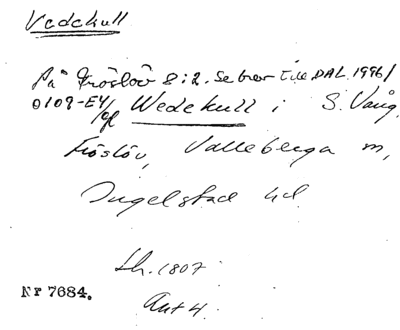 Vedekull
På Fröslöv 8:2. Se brev till DAL 1996/
0109-EY/
of Wedekull i S. Vång,
Fröslöv, Valleberga m,
Ingelstad hd
Lh. 1807
Nr 7684.
Akt 4.